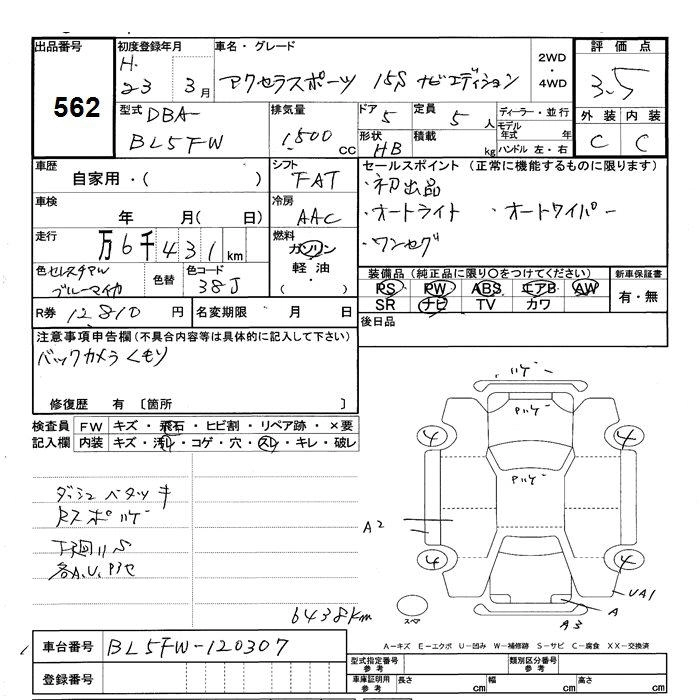 出品番号
562
初度登録年月
H.
23 3月
車名・グレード
アクセラスポーツ 15S ナビエディション
2WD
・
4WD
評価点
3.5
型式 DBA-
BL5FW
排気量
1500 cc
ドア 5
形状 HB
定員 5 人
積載 kg
ディーラー・並行
モデル年式 年
ハンドル 左・右
外装 内装
C C
車歴
自家用・( )
シフト
FAT
車検
年 月( 日)
冷房
AAC
走行
万6千431km
燃料
ガソリン
軽油・
色 セレスチアル
ブルーマイカ
色替
色コード
38J
R券 12810 円
名変期限 月 日
セールスポイント (正常に機能するものに限ります)
・初出品
・オートライト ・オートワイパー
・ワンセグ
装備品(純正品に限り○をつけてください)
PS PW ABS エアB AW
SR ナビ TV カワ
新車保証書
有・無
後日品
注意事項申告欄(不具合内容等は具体的に記入して下さい)
バックカメラくもり
修復歴 有 〔箇所 〕
検査員記入欄
FW キズ・飛石・ヒビ割・リペア跡・×要
内装 キズ・汚れ・コゲ・穴・スレ・キレ・破レ
ダッシュベタツキ
Rスポハゲ
下廻リS
各A、U、
6438km
ハゲ
Pハゲ
Pハゲ
4
4
4
4
A2
UA1
A
A3
スペア
A-キズ E-エクボ U-凹み W-補修跡 S-サビ C-腐食 XX-交換済
車台番号 BL5FW-120307
登録番号
型式指定番号
参考
類別区分番号
参考
車庫証明用
参考
長さ cm
幅 cm
高さ cm